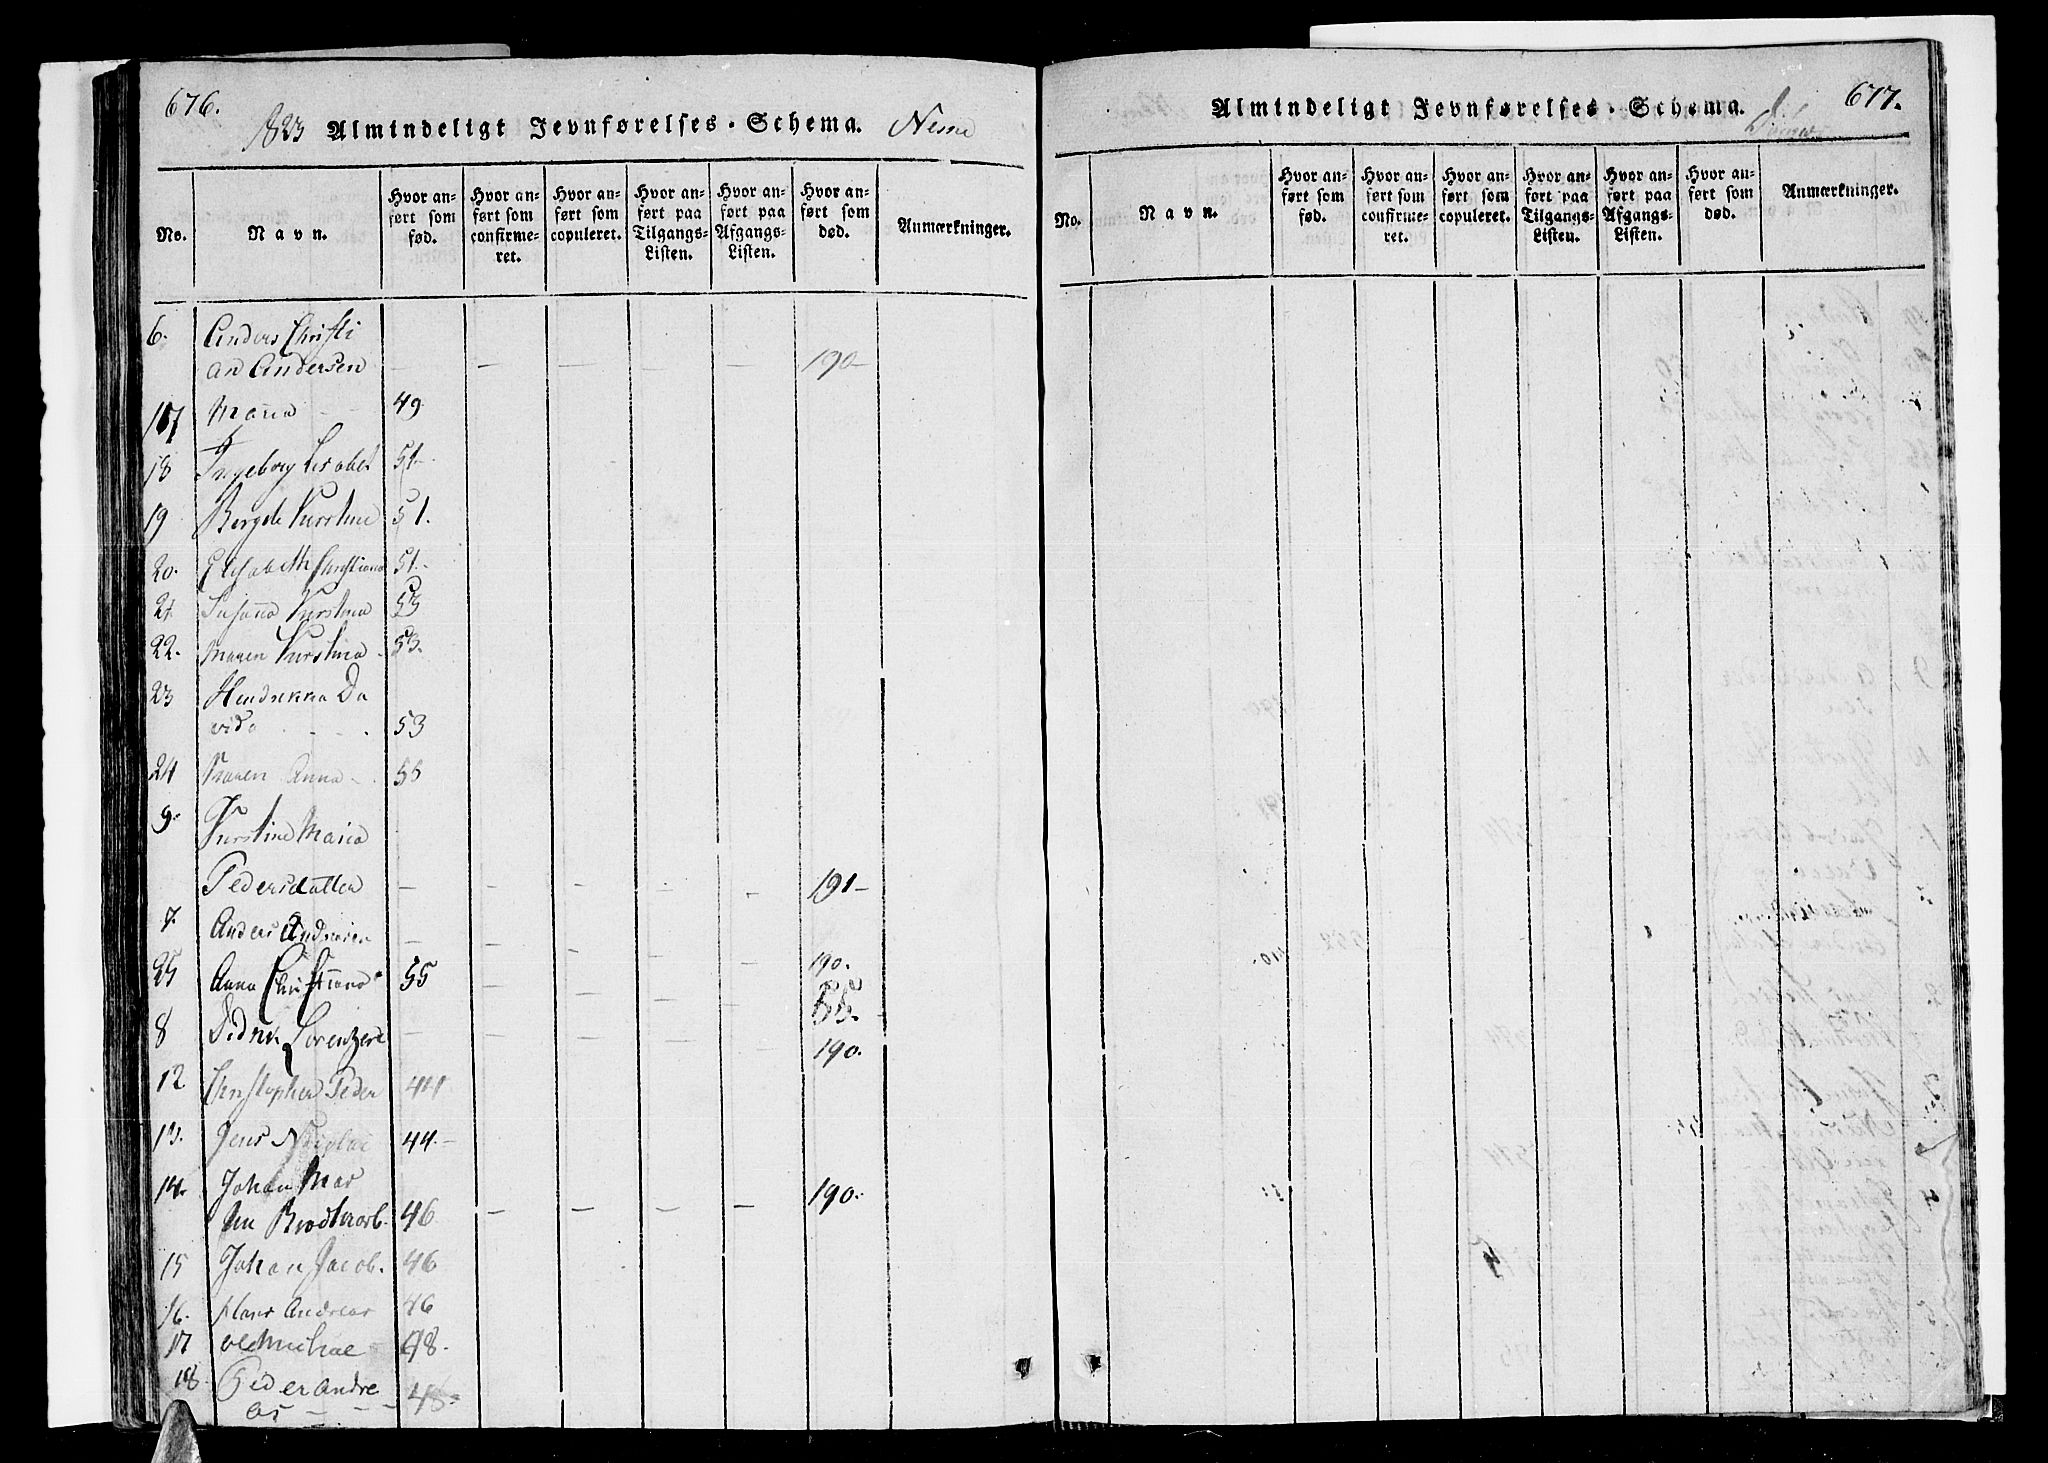 676.
1823 Almindeligt Jevnførelses-Schema. Nesne
No.
Navn.
Hvor anført som fød.
Hvor anført som confirmeret.
Hvor anført som copuleret.
Hvor anført paa Tilgangs-Listen.
Hvor anført paa Afgangs-Listen.
Hvor anført som død.
Anmærkninger.
6. Anders Christi
an Andersen — — — — — 190—
17 Maña - - 49
18 Ingeborg Lisabet 51-
19 Bergete Kirstine 51.
20. Elisabeth Christiana 51.
21 Susaña Kirstina 53
22. Maren Kirstina . 53.
23 Hendrikka Da
vida . . . . 53
24 Karen Anna - . 55
9. Kirstine Maria
Pedersdatter — — — — — 191—
7. Anders Andreasen — — — — — 190.
25 Anna Christiana 55 — — — 55.
8 Didrik Lorentzen — — — — — 190.
12 Christopher Peder 44
13. Jens Nicolai 44.-
14. Johan Mar
tin Brodtkorb. 46 — — — — 190.
15 Johan Jacob. 46
16. Hans Andreas 46
17 Ole Michael 48.
18. Peder Andre
as - - - - 48-
677.
Almindeligt Jevnførelses-Schema.
No.
Navn.
Hvor anført som fød.
Hvor anført som confirmeret.
Hvor anført som copuleret.
Hvor anført paa Tilgangs-Listen.
Hvor anført paa Afgangs-Listen.
Hvor anført som død.
Anmærkninger.